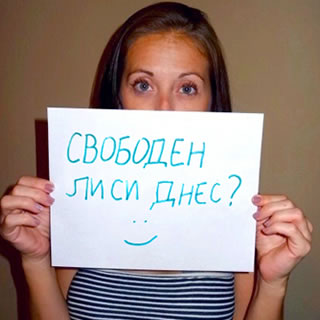 СВОБОДЕН
ЛИ СИ ДНЕС?
:)